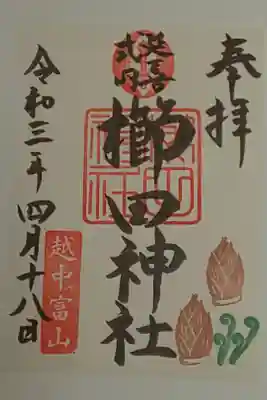 奉拝
延喜
式内
櫛田神社
令和三年四月十八日
越中富山